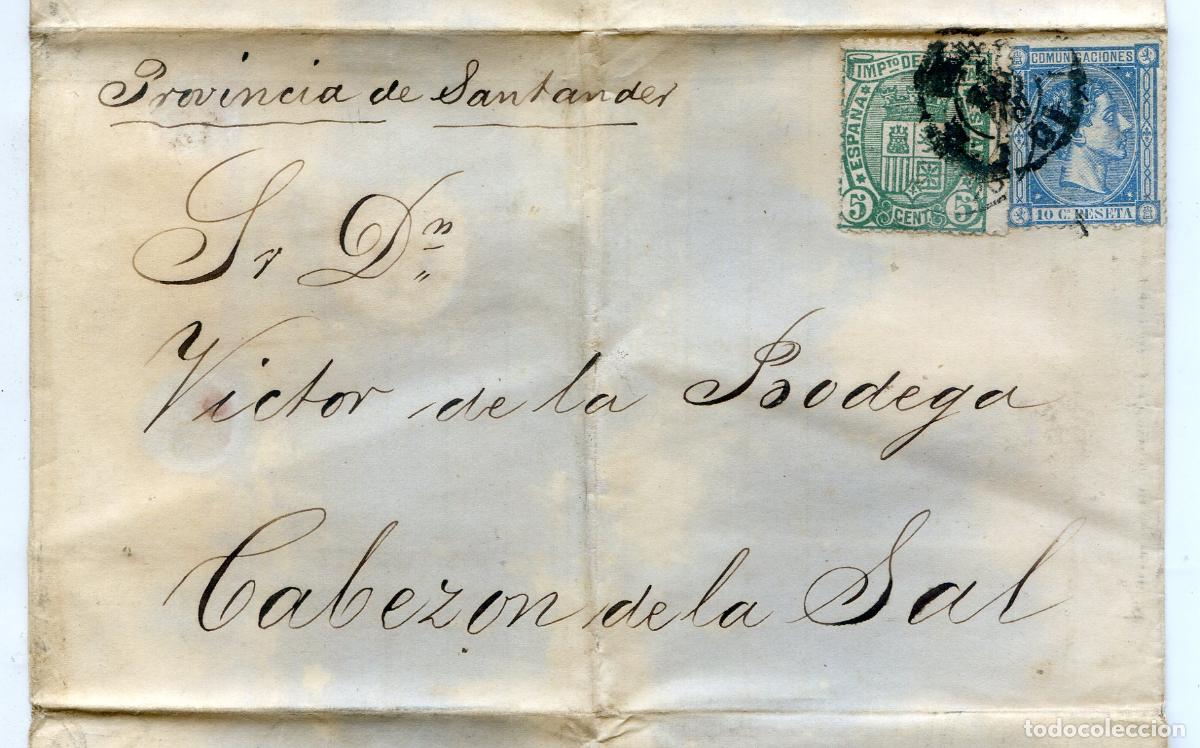 Provincia de Santander
Sr Dn
Victor de la Bodega
Cabezon de la Sal
IMPTO DE
ESPAÑA
5 CENT. 5
COMUNICACIONES
10 C. PESETA
todocoleccion